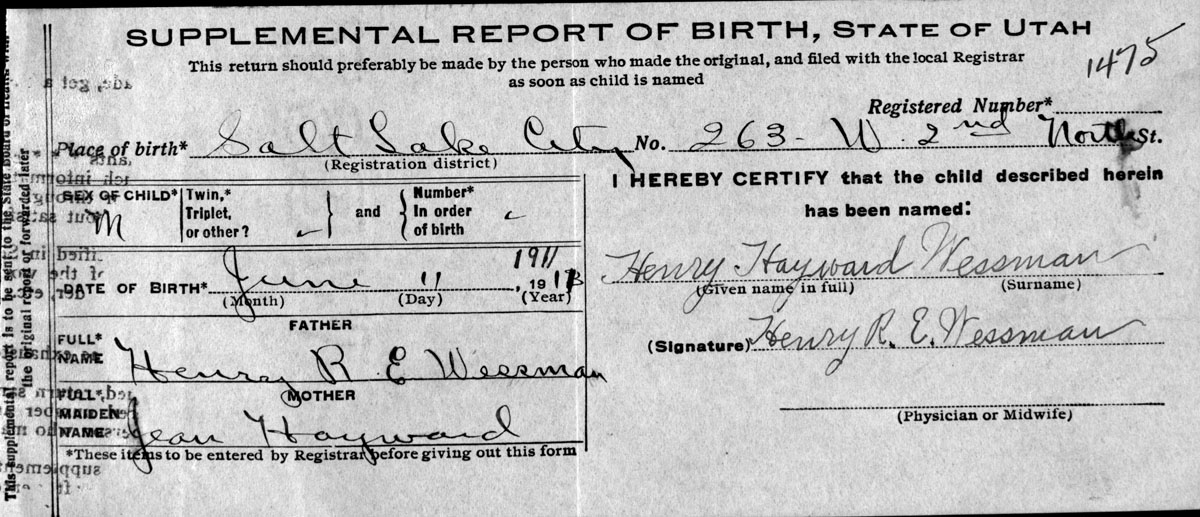 SUPPLEMENTAL REPORT OF BIRTH, STATE OF UTAH
This return should preferably be made by the person who made the original, and filed with the local Registrar
as soon as child is named
1475
Registered Number*
Place of birth* Salt Lake City No. 263 - W. 2nd North St.
(Registration district)
SEX OF CHILD* M
Twin,* Triplet, or other?
and
Number* In order of birth
DATE OF BIRTH* June 11, 191
1911
(Month) (Day) (Year)
FATHER
FULL* NAME Henry R E Wessman
MOTHER
FULL* MAIDEN NAME Jean Hayward
*These items to be entered by Registrar before giving out this form
I HEREBY CERTIFY that the child described herein
has been named:
Henry Hayward Wessman
(Given name in full) (Surname)
(Signature) Henry R. E. Wessman
(Physician or Midwife)
This supplemental report is to be sent to the State Board of Health with
the original report or forwarded later